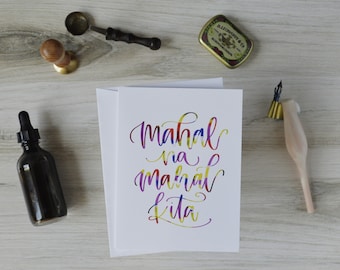 mahal
na
mahal
kita